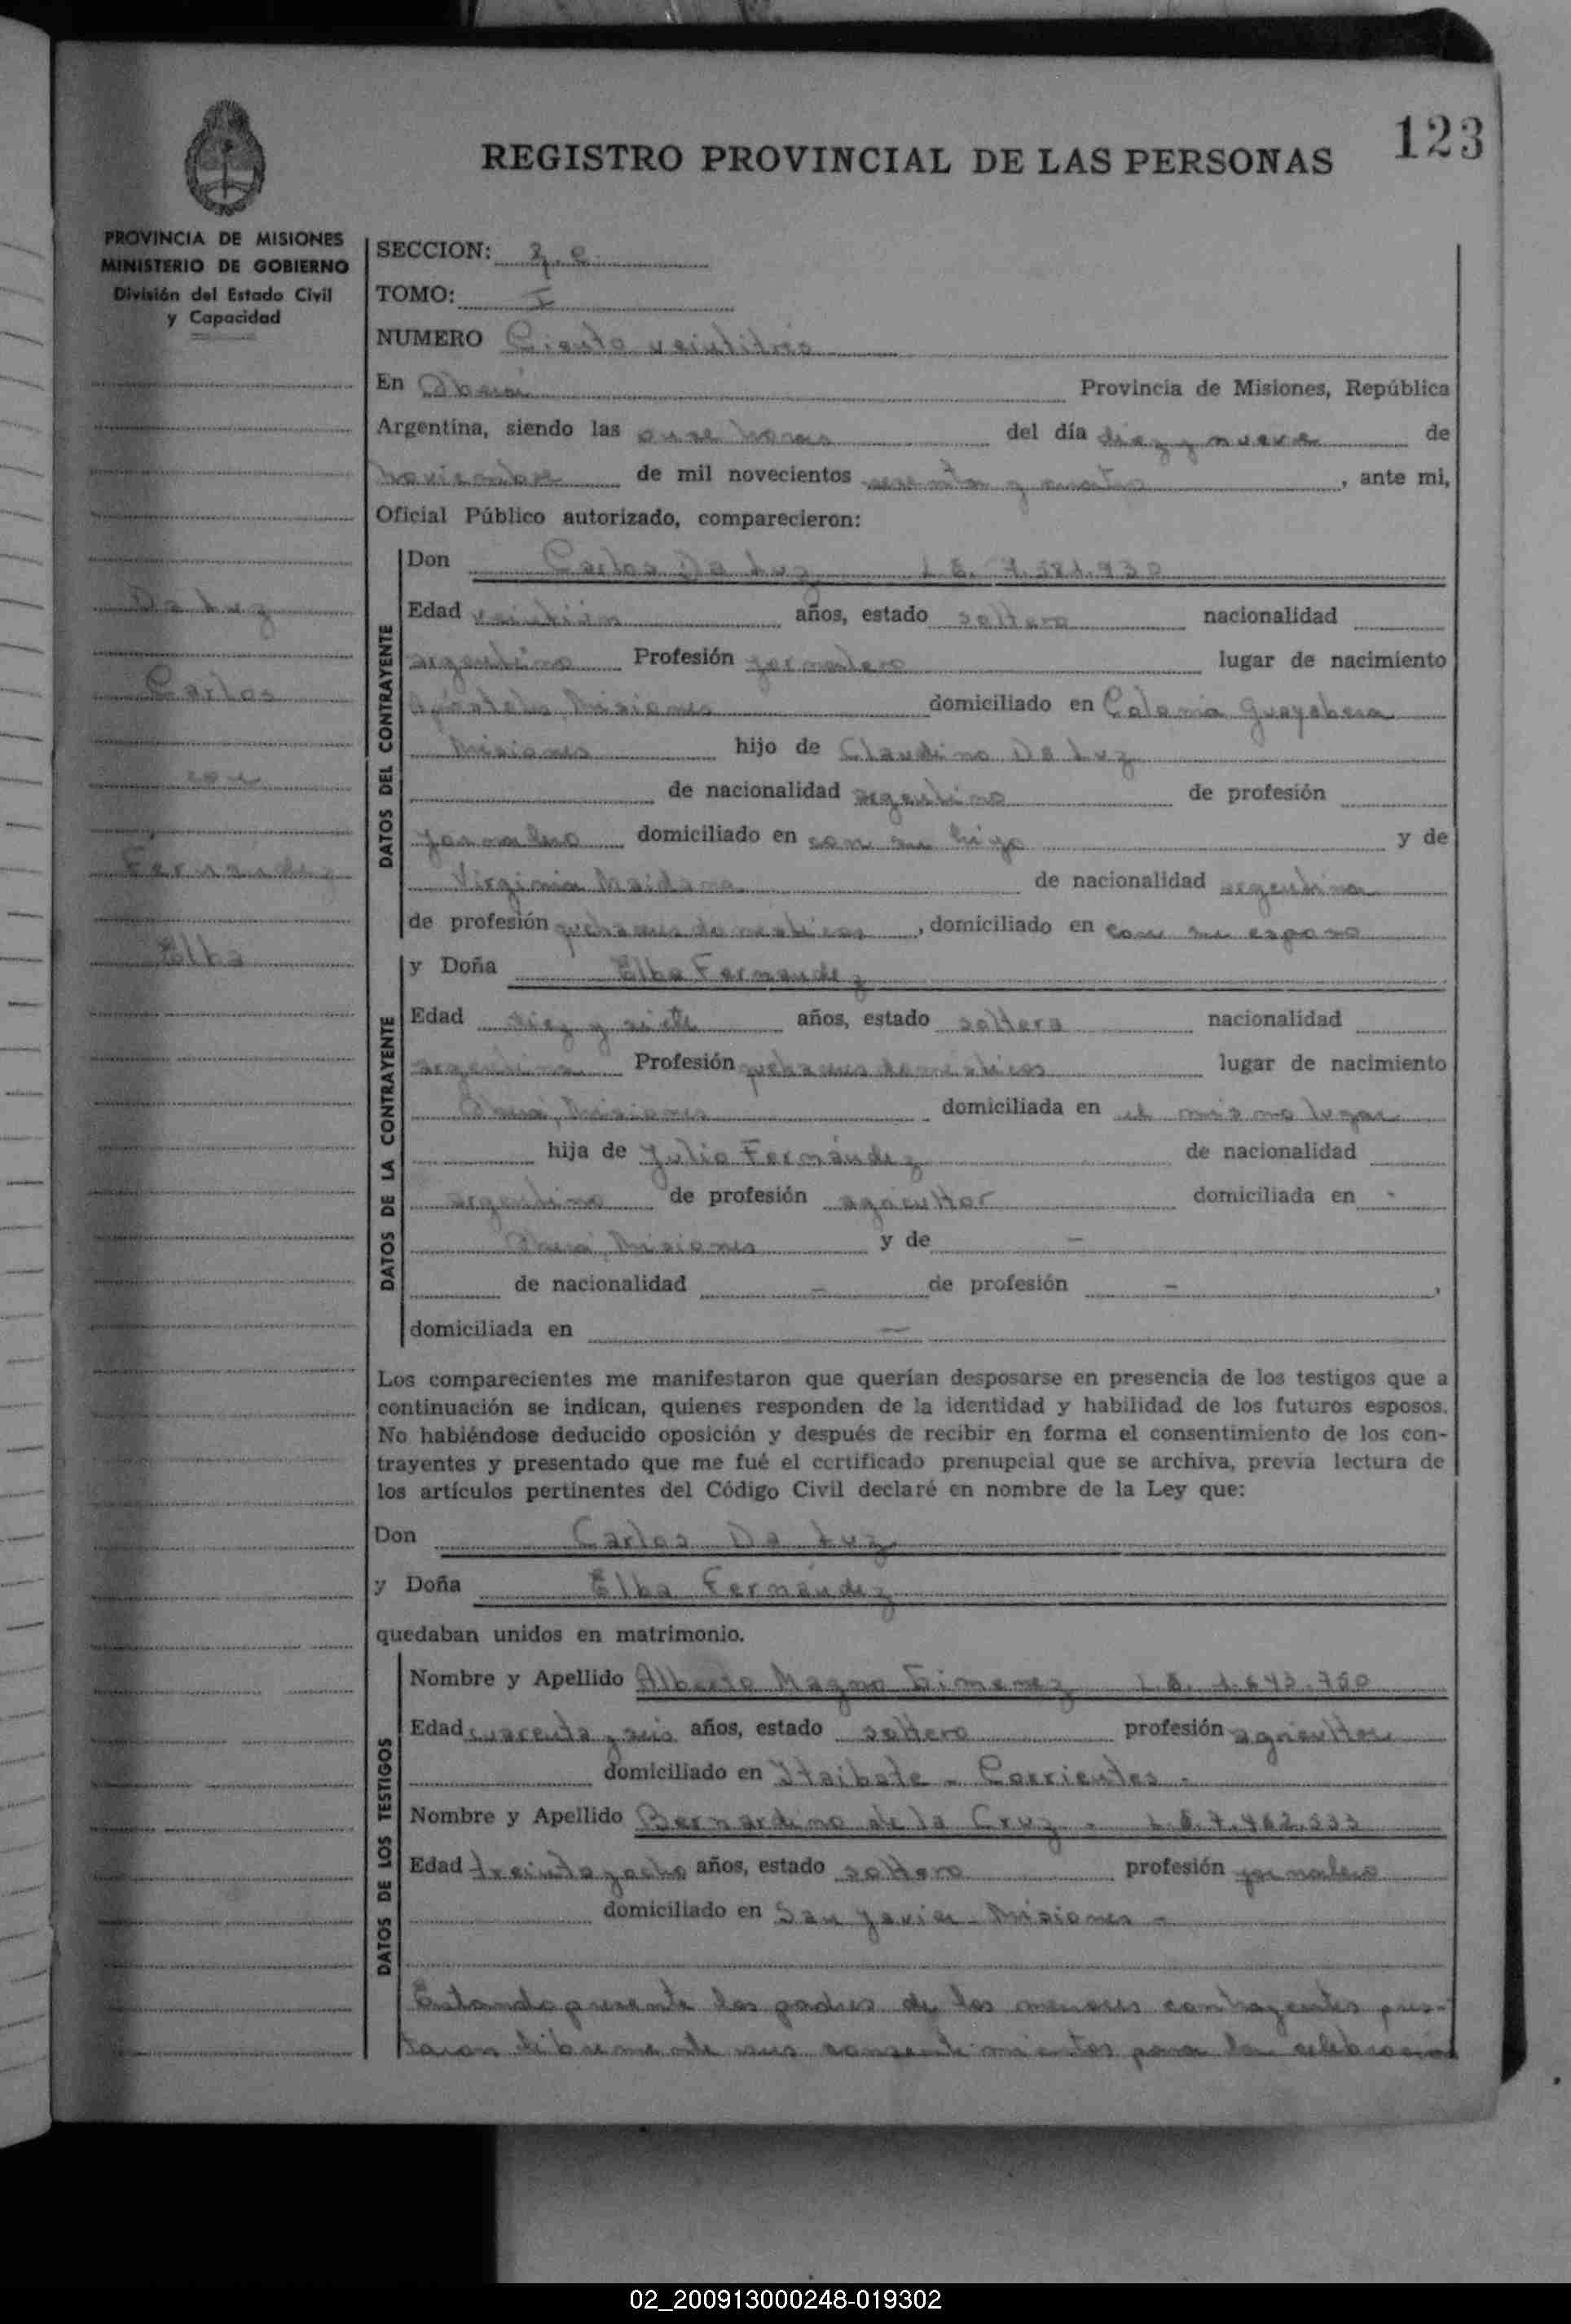 123
REGISTRO PROVINCIAL DE LAS PERSONAS
PROVINCIA DE MISIONES
MINISTERIO DE GOBIERNO
División del Estado Civil
y Capacidad
Da Luz
Carlos
con
Fernandez
Elba
SECCION:
TOMO: I
NUMERO Ciento veintitres
En Oberá Provincia de Misiones, República
Argentina, siendo las onze horas del día diez y nueve de
noviembre de mil novecientos sesenta y cuatro, ante mi,
Oficial Público autorizado, comparecieron:
DATOS DEL CONTRAYENTE
Don Carlos Da Luz L E.
Edad veintiún años, estado soltero nacionalidad
argentino Profesión jornalero lugar de nacimiento
Apóstoles, Misiones domiciliado en Colonia Guayabera
Misiones hijo de Claudino Da Luz
de nacionalidad argentino de profesión
jornalero domiciliado en con su hijo y de
Virginia Maidana de nacionalidad argentina
de profesión quehaceres domesticos, domiciliado en con su esposo
DATOS DE LA CONTRAYENTE
y Doña Elba Fernandez
Edad diez y siete años, estado soltera nacionalidad
argentina Profesión quehaceres domésticos lugar de nacimiento
Oberá, Misiones domiciliada en el mismo lugar
hija de Julio Fernández de nacionalidad
argentino de profesión agricultor domiciliada en
Oberá, Misiones y de —
de nacionalidad — de profesión —,
domiciliada en —
Los comparecientes me manifestaron que querían desposarse en presencia de los testigos que a
continuación se indican, quienes responden de la identidad y habilidad de los futuros esposos.
No habiéndose deducido oposición y después de recibir en forma el consentimiento de los con-
trayentes y presentado que me fué el certificado prenupcial que se archiva, previa lectura de
los artículos pertinentes del Código Civil declaré en nombre de la Ley que:
Don Carlos Da Luz
y Doña Elba Fernández
quedaban unidos en matrimonio.
DATOS DE LOS TESTIGOS
Nombre y Apellido Alberto Magno Gimenez L.E.
Edad cuarenta y seis años, estado soltero profesión agricultor
domiciliado en Itaibate - Corrientes -
Nombre y Apellido Bernardino de la Cruz - L.E.
Edad treinta y ocho años, estado soltero profesión jornalero
domiciliado en San Javier - Misiones -
Estando presente los padres de los menores contrayentes pres-
taron libremente sus consentimientos para la celebracion
02_200913000248-019302